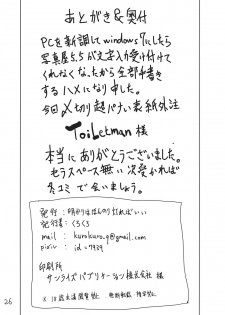 あとがき&奥付
PCを新調してwindows7にしたら
写真屋5.5が文字入力受け付けて
くれなくなったから全部手書き
するハメになり申した。
今回〆切り超パない表紙外注
ToiLetman 様
本当にありがとうございました。
セラスペース無い次受かれば
冬コミで会いましょう。
発行：明かりはほんのり灯ればいい
発行者：くろくろ
mail : kurokuro.9@gmail.com
pixiv : id=7939
印刷所
サンライズパブリケーション株式会社 様
26